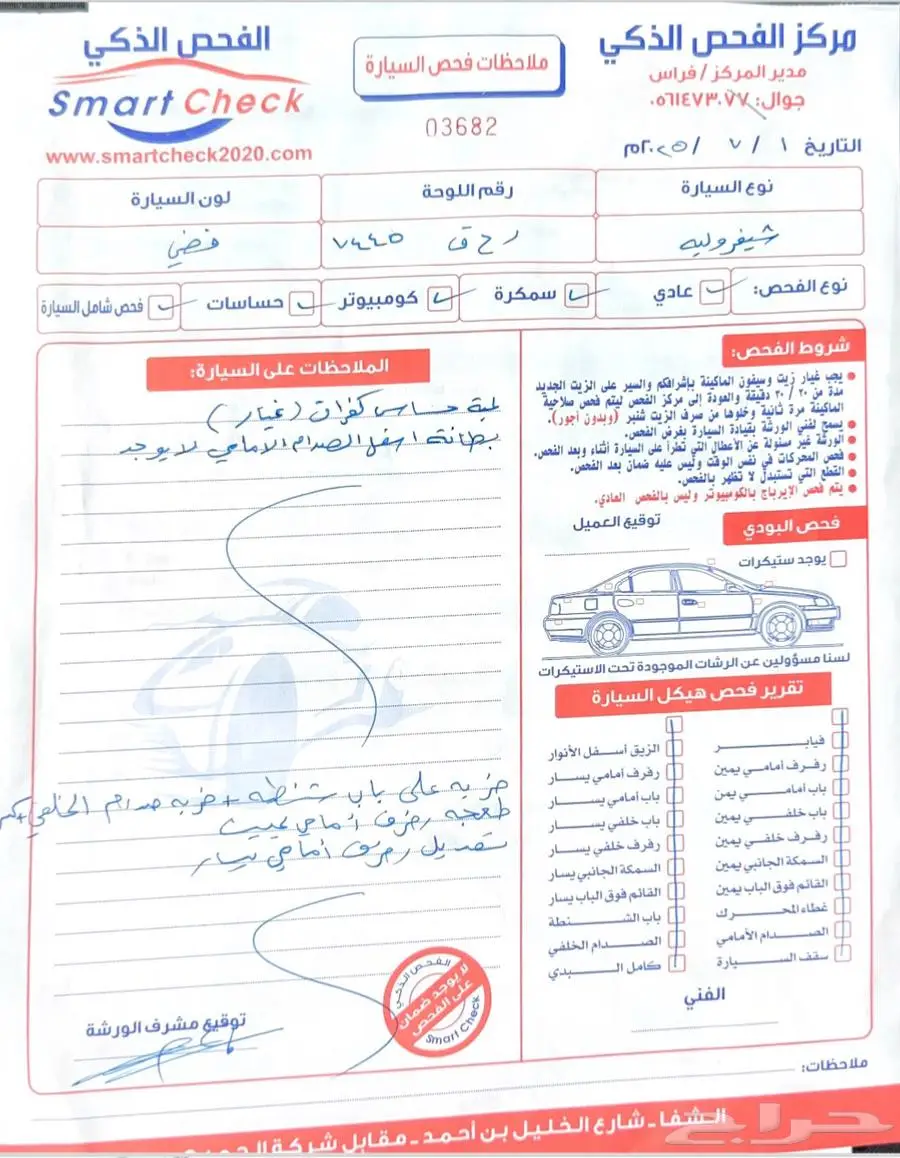 مركز الفحص الذكي
مدير المركز / فراس
جوال: ٠٥٦١٤٧٣٠٧٧
ملاحظات فحص السيارة
03682
الفحص الذكي
Smart Check
www.smartcheck2020.com
التاريخ ١ / ٧ / ٢٠٢٥م
نوع السيارة
رقم اللوحة
لون السيارة
شيفروليه
ر ح ق ٧٤٤٥
فضي
نوع الفحص:
عادي
سمكرة
كومبيوتر
حساسات
فحص شامل السيارة
شروط الفحص:
يجب غيار زيت وسيفون الماكينة بإشرافكم والسير على الزيت الجديد
مدة من ٢٠ / ٣٠ دقيقة والعودة إلى مركز الفحص ليتم فحص صلاحية
الماكينة مرة ثانية وخلوها من صرف الزيت شنبر (وبدون أجور).
يسمح لفني الورشة بقيادة السيارة بغرض الفحص.
الورشة غير مسئولة عن الأعطال التي تطرأ على السيارة أثناء وبعد الفحص.
فحص المحركات في نفس الوقت وليس عليه ضمان بعد الفحص.
القطع التي تستبدل لا تظهر بالفحص.
يتم فحص الإيرباج بالكومبيوتر وليس بالفحص العادي.
توقيع العميل
فحص البودي
يوجد ستيكرات
لسنا مسؤولين عن الرشات الموجودة تحت الاستيكرات
تقرير فحص هيكل السيارة
فيابر
رفرف أمامي يمين
باب أمامي يمن
باب خلفي يمين
رفرف خلفي يمين
السمكة الجانبي يمين
القائم فوق الباب يمين
غطاء المحرك
الصدام الأمامي
سقف السيارة
الزيق أسفل الأنوار
رفرف أمامي يسار
باب أمامي يسار
باب خلفي يسار
رفرف خلفي يسار
السمكة الجانبي يسار
القائم فوق الباب يسار
باب الشنطة
الصدام الخلفي
كامل البدي
الفني
الملاحظات على السيارة:
لمبة حساس كفرات (غيار)
بطانة اسفل الصدام الامامي لا يوجد
ضربه على باب شنطه + ضربه صدام الخلفي
طعجه رفرف أمامي يمين
تعديل رفرف أمامي يسار
الفحص الذكي
لا يوجد ضمان
على الفحص
Smart Check
توقيع مشرف الورشة
ملاحظات:
الشفا - شارع الخليل بن أحمد - مقابل شركة
حراج